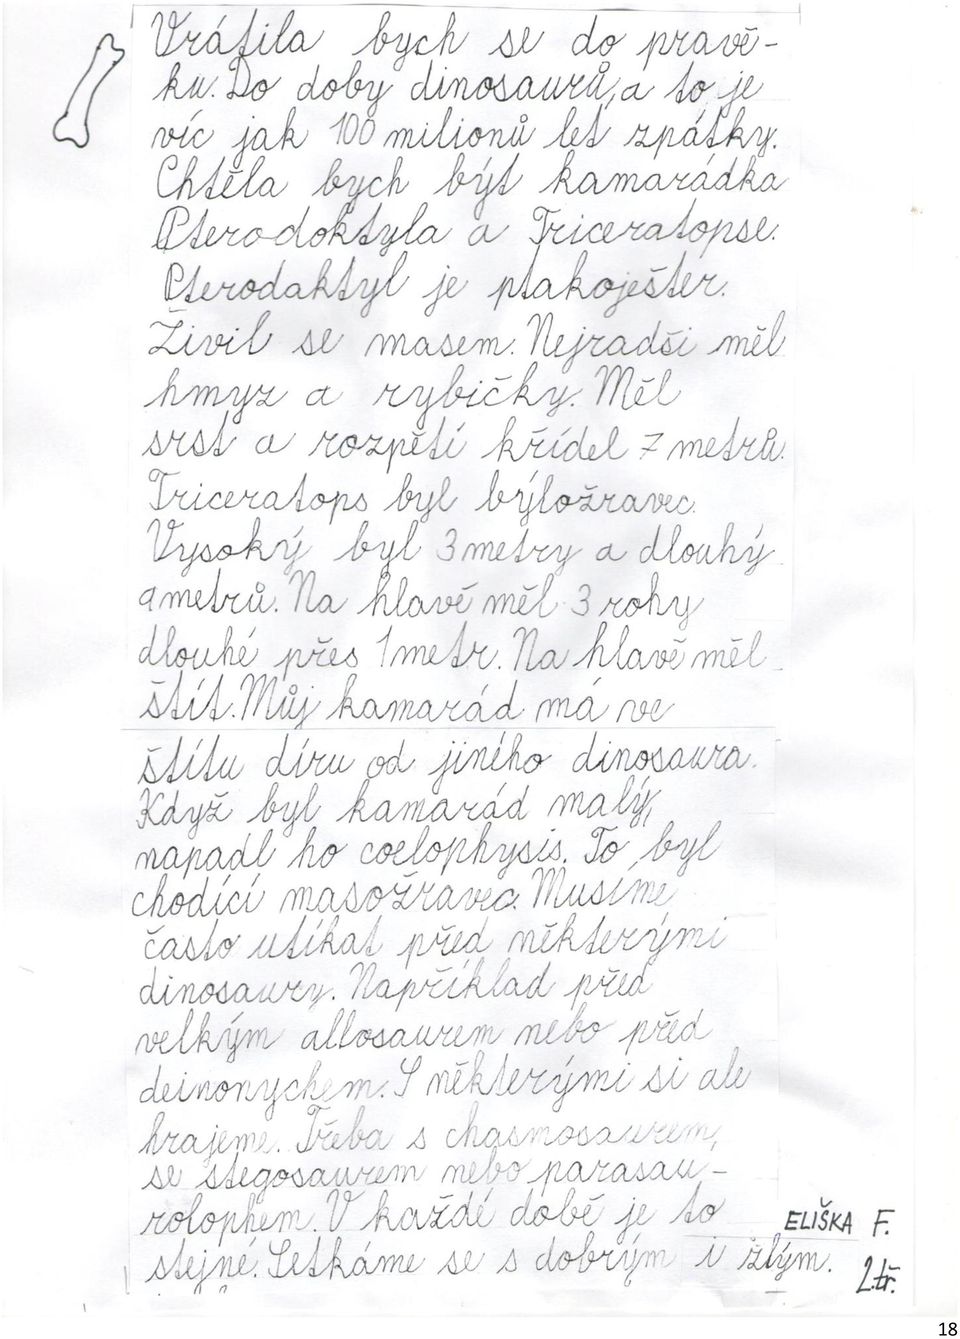 Vrátila bych se do pravě-
ku. Do doby dinosaurů, a to je
víc jak 100 milionů let zpátky.
Chtěla bych být kamarádka
Pterodoktyla a Triceratopse.
Pterodaktyl je ptakoještěr.
Živil se masem. Nejradši měl
hmyz a rybičky. Měl
srst a rozpětí křídel 7 metrů.
Triceratops byl býložravec.
Vysoký byl 3 metry a dlouhý
9 metrů. Na hlavě měl 3 rohy
dlouhé přes 1 metr. Na hlavě měl
štít. Můj kamarád má ve
štítu díru od jiného dinosaura.
Když byl kamarád malý,
napadl ho coelophysis. To byl
chodící masožravec. Musíme
často utíkat před některými
dinosaury. Například před
velkým allosaurem nebo před
deinonychem. S některými si ale
hrajeme. Třeba s chasmosaurem,
se stegosaurem nebo parasau-
rolophem. V každé době je to
stejné. Setkáme se s dobrým i zlým.
ELIŠKA F.
2.tř.
18